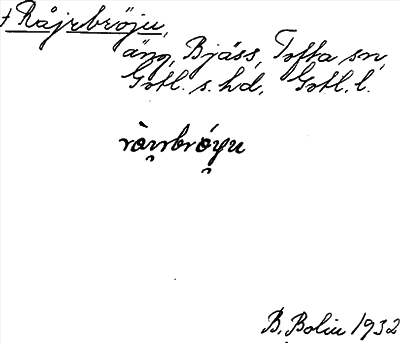 † Råjrbröju,
äng, Bjäss, Tofta sn,
Gotl. s. hd, Gotl. l.
B. Bolin 1932